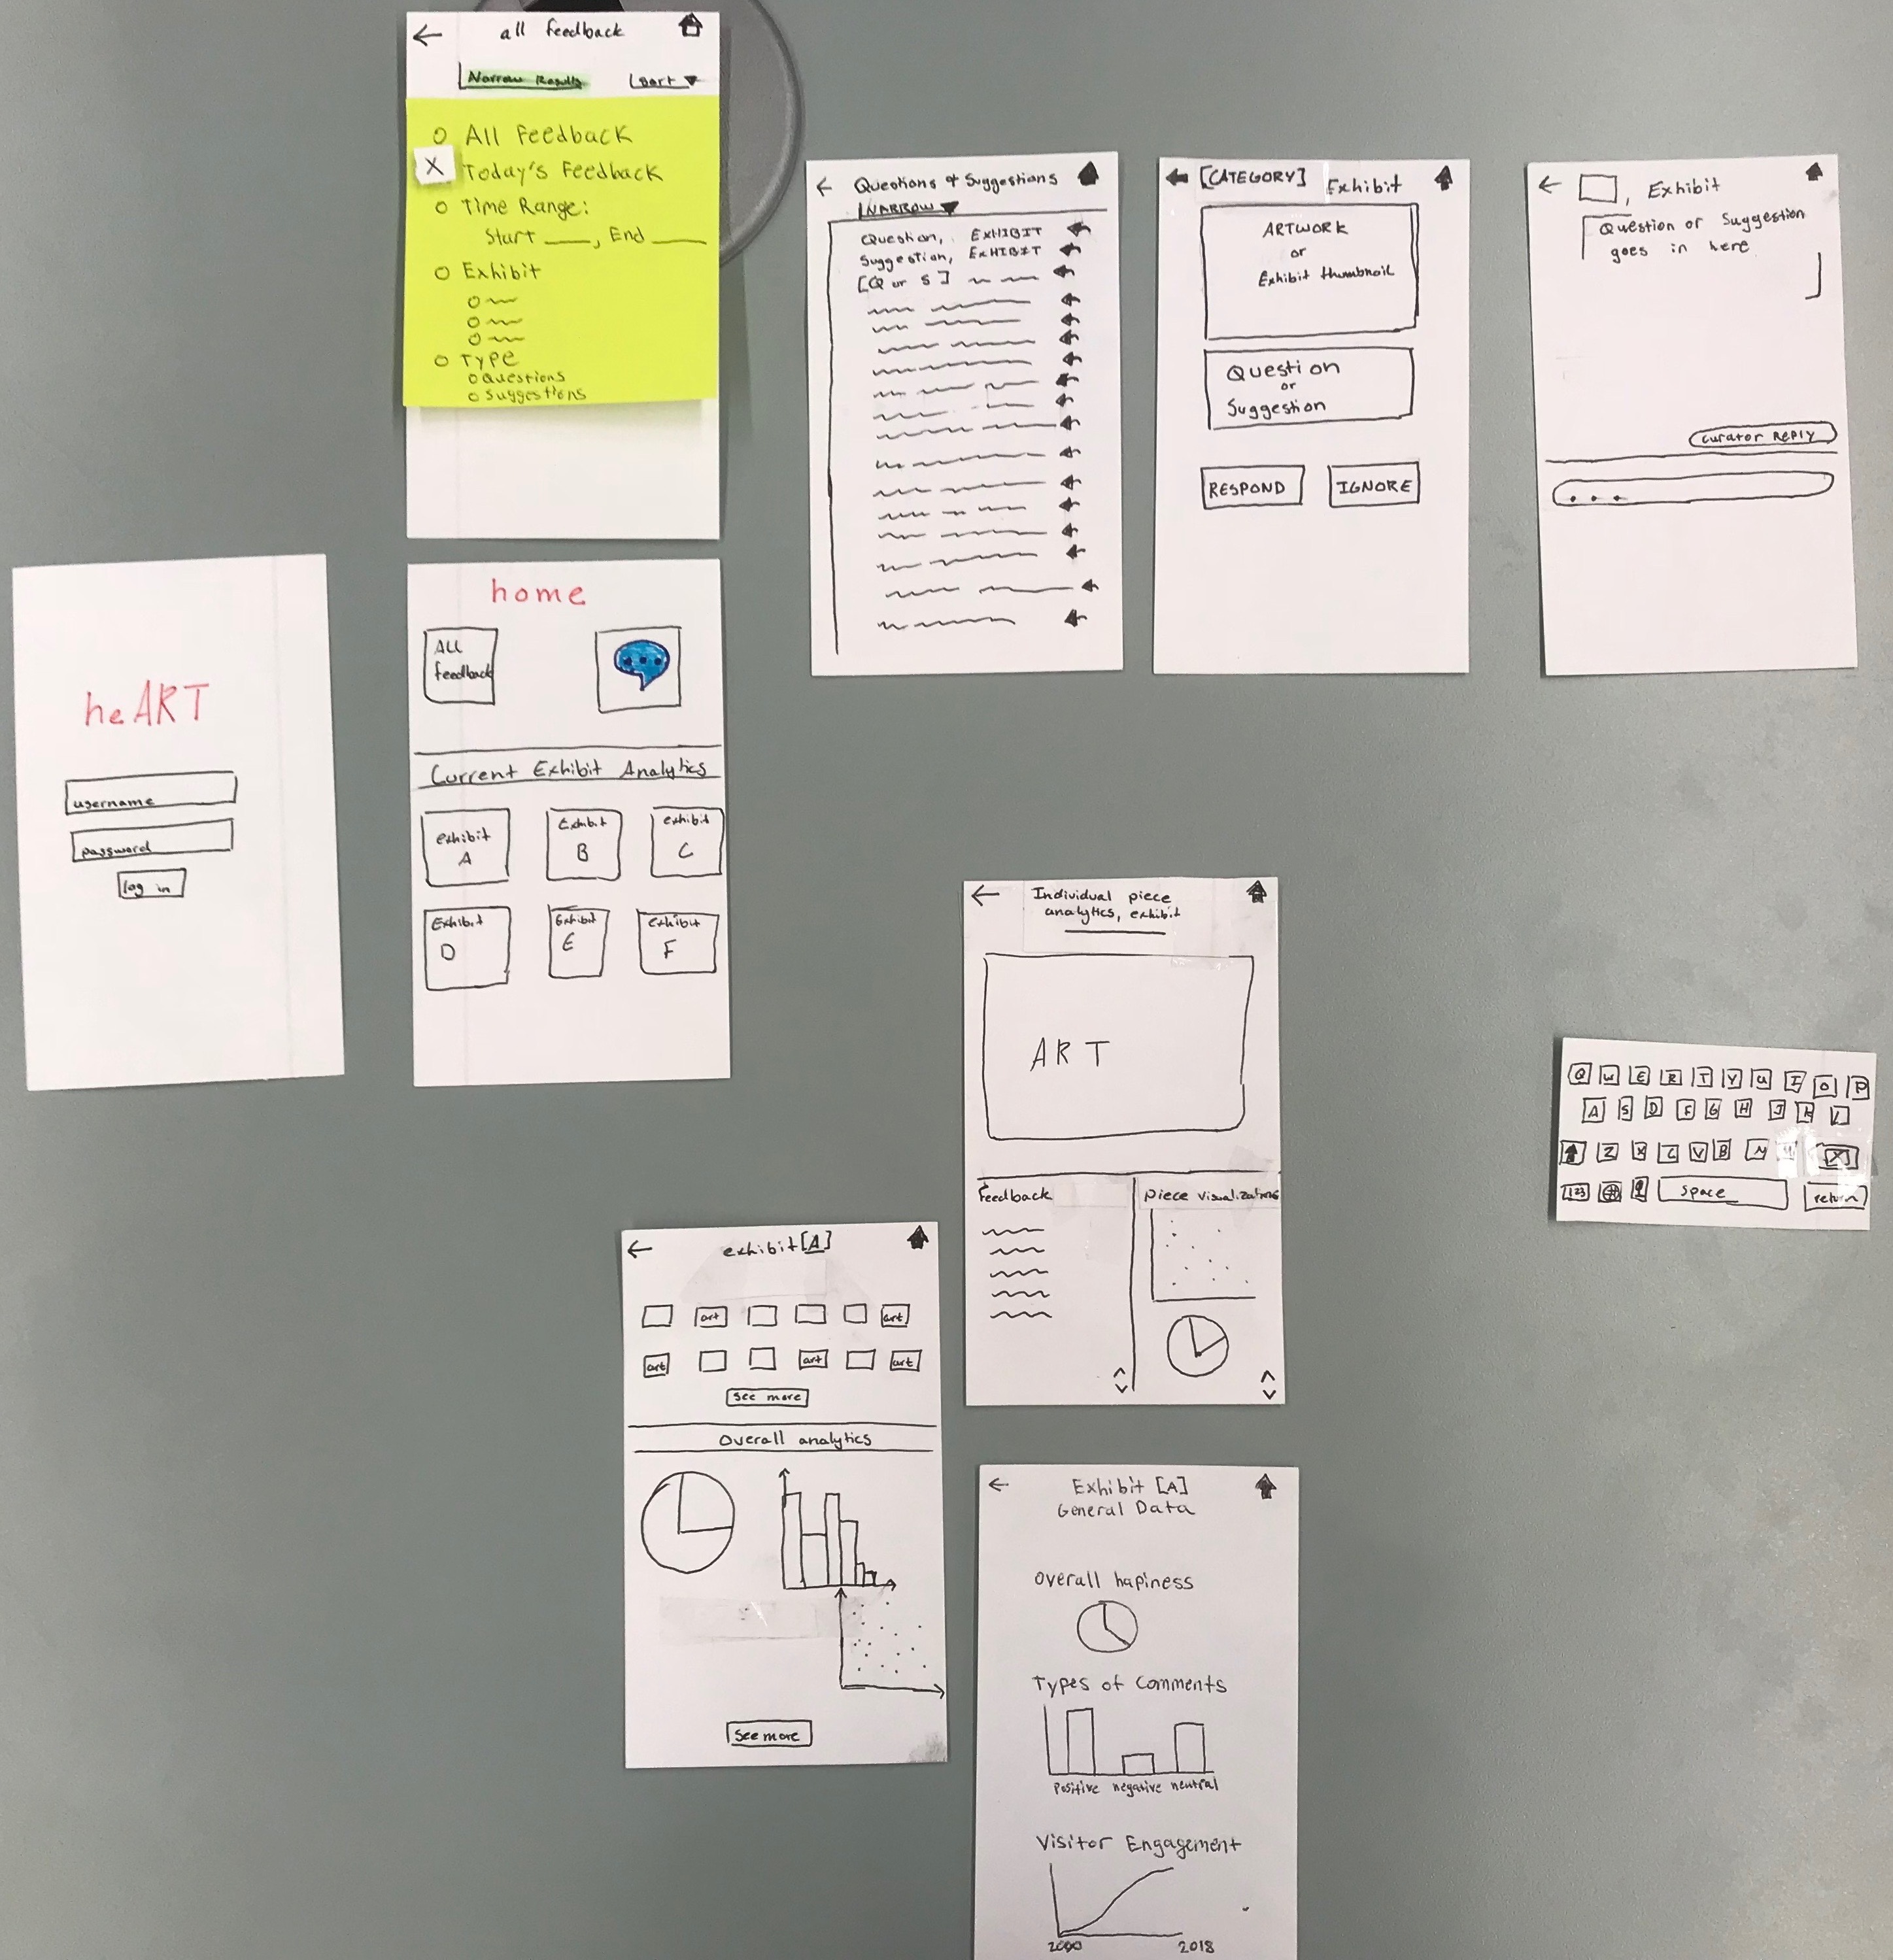 all feedback
Narrow Results
Sort
O All Feedback
X Today's Feedback
O Time Range:
Start ____, End ____
O Exhibit
O
O
O
O Type
O Questions
O Suggestions
Questions & Suggestions
NARROW
Question, EXHIBIT
Suggestion, EXHIBIT
[Q or S]
[CATEGORY] Exhibit
ARTWORK
or
Exhibit thumbnail
Question
or
Suggestion
RESPOND
IGNORE
, Exhibit
Question or Suggestion
goes in here
curator REPLY
...
heART
username
password
log in
home
ALL
feedback
Current Exhibit Analytics
exhibit
A
Exhibit
B
exhibit
C
Exhibit
D
Exhibit
E
exhibit
F
Individual piece
analytics, exhibit
ART
Feedback
piece visualizations
Q W E R T Y U I O P
A S D F G H J K L
Z X C V B N X
123 space return
exhibit [A]
art art
art art art
See more
Overall analytics
See more
Exhibit [A]
General Data
Overall hapiness
Types of Comments
Positive negative neutral
Visitor Engagement
2000 2018